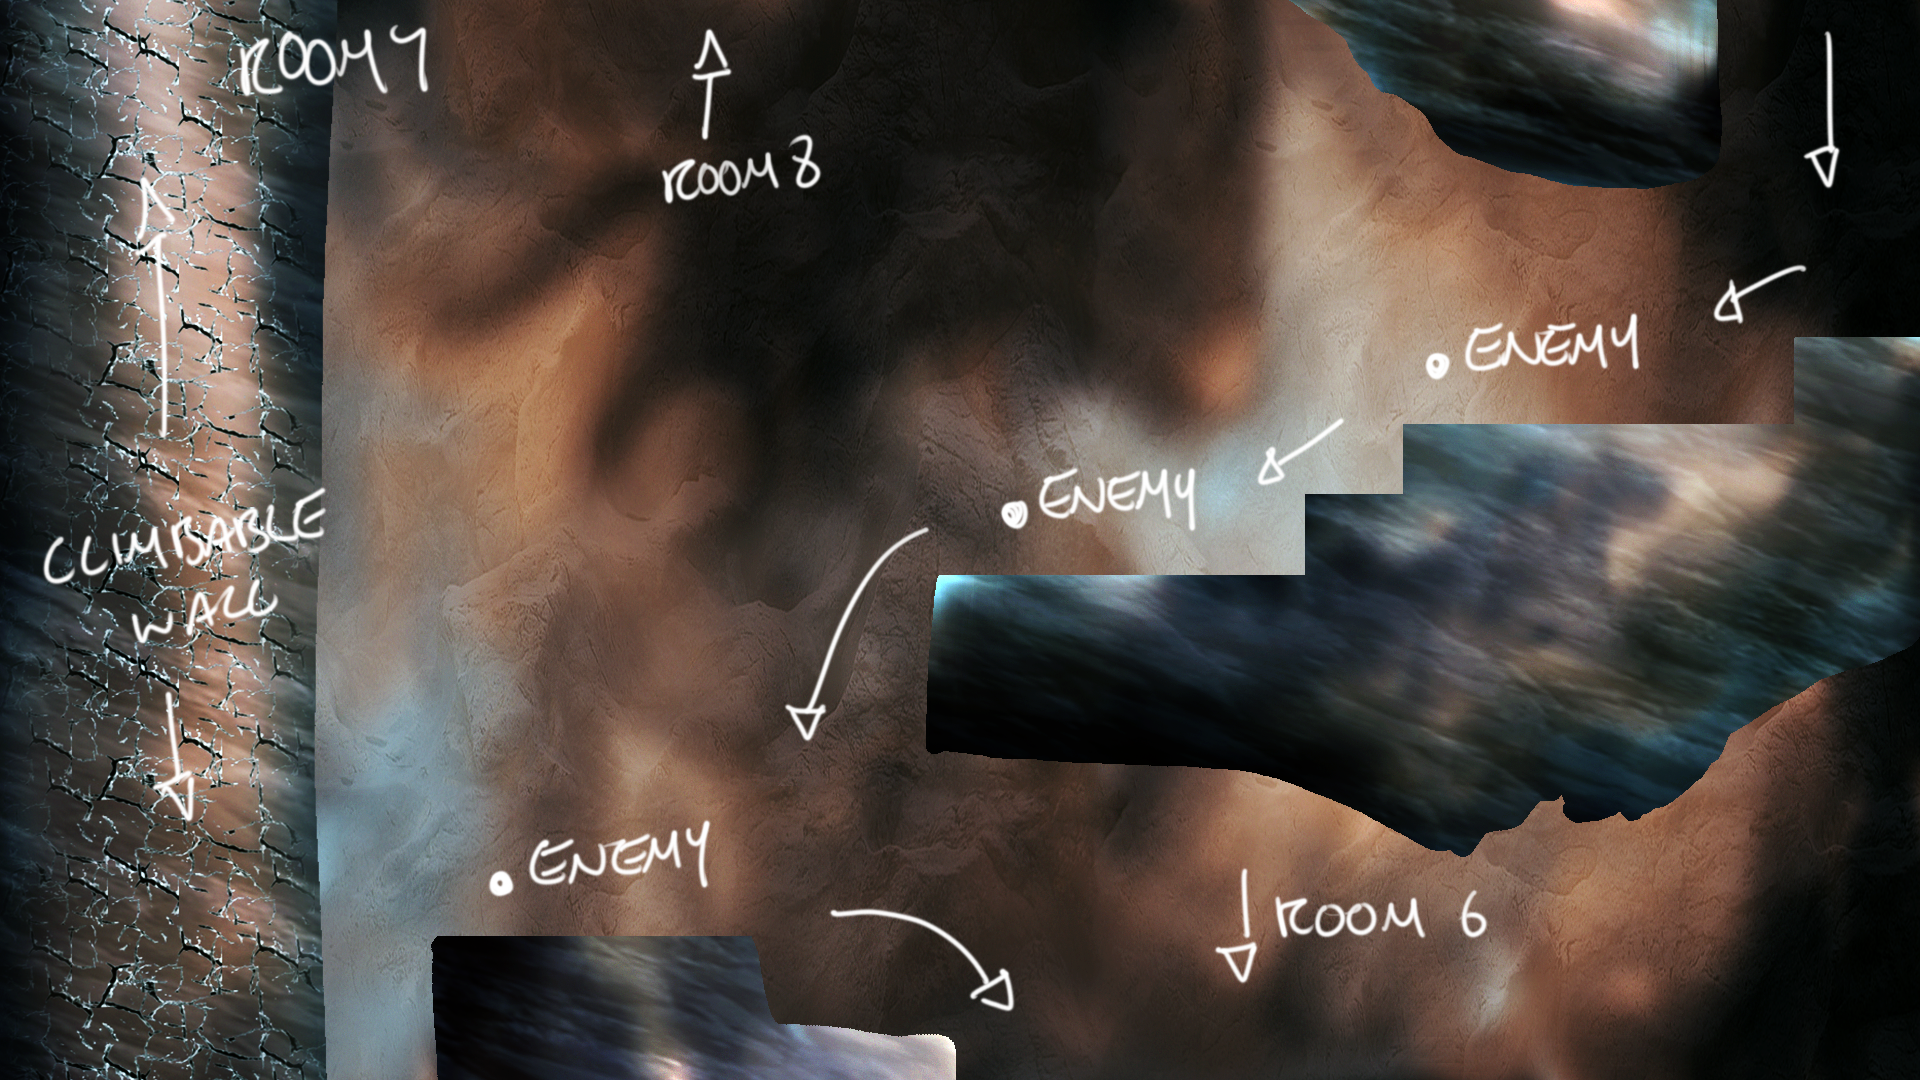 ROOM 7
ROOM 8
ENEMY
ENEMY
CLIMBABLE
WALL
ENEMY
ROOM 6